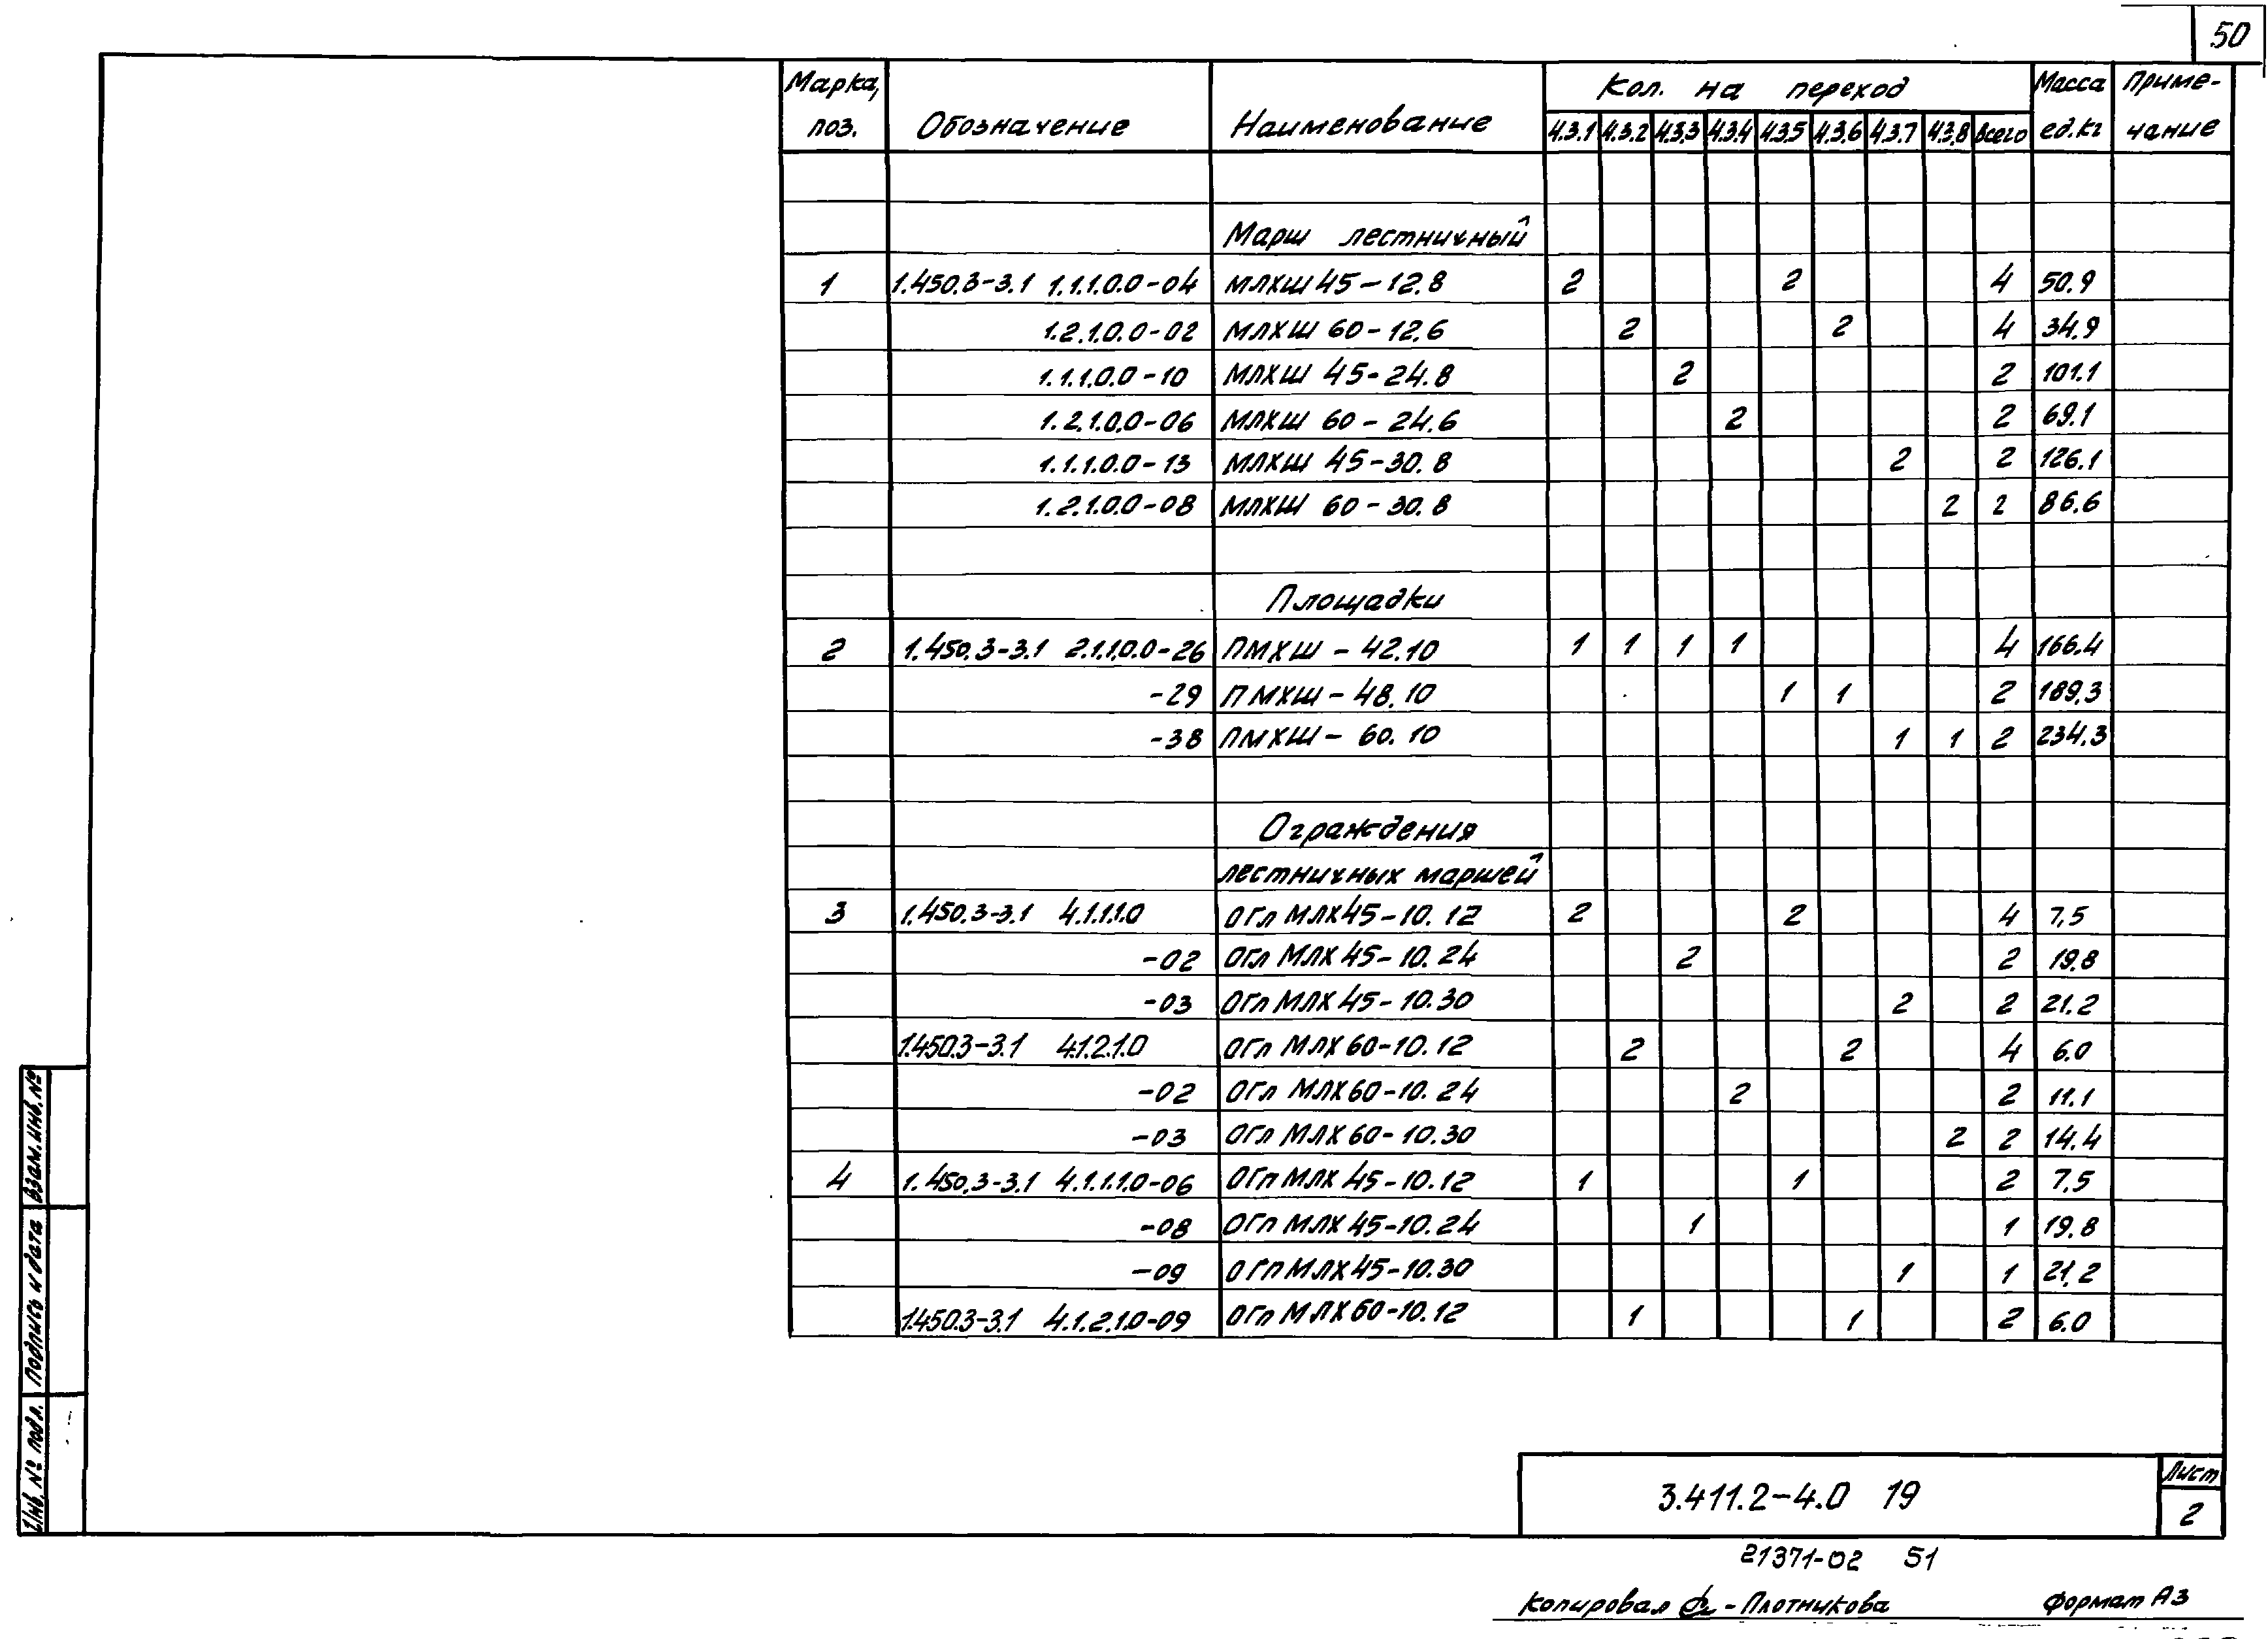 50
Марка, поз. Обозначение Наименование Кол. на переход Масса ед. кг Примечание
4.3.1 4.3.2 4.3.3 4.3.4 4.3.5 4.3.6 4.3.7 4.3.8 Всего
Марш лестничный
1 1.450.3-3.1 1.1.1.0.0-04 МЛХШ 45-12.8 2 2 4 50.9
1.2.1.0.0-02 МЛХШ 60-12.6 2 2 4 34.9
1.1.1.0.0-10 МЛХШ 45-24.8 2 2 101.1
1.2.1.0.0-06 МЛХШ 60-24.6 2 2 69.1
1.1.1.0.0-13 МЛХШ 45-30.8 2 2 126.1
1.2.1.0.0-08 МЛХШ 60-30.8 2 2 86.6
Площадки
2 1.450.3-3.1 2.1.1.0.0-26 ПМХШ-42.10 1 1 1 1 4 166.4
-29 ПМХШ-48.10 1 1 2 189.3
-38 ПМХШ-60.10 1 1 2 234.3
Ограждения
лестничных маршей
3 1.450.3-3.1 4.1.1.1.0 ОГл МЛХ45-10.12 2 2 4 7.5
-02 ОГл МЛХ45-10.24 2 2 19.8
-03 ОГл МЛХ45-10.30 2 2 21.2
1.450.3-3.1 4.1.2.1.0 ОГл МЛХ60-10.12 2 2 4 6.0
-02 ОГл МЛХ60-10.24 2 2 11.1
-03 ОГл МЛХ60-10.30 2 2 14.4
4 1.450.3-3.1 4.1.1.1.0-06 ОГп МЛХ45-10.12 1 1 2 7.5
-08 ОГп МЛХ45-10.24 1 1 19.8
-09 ОГп МЛХ45-10.30 1 1 21.2
1.450.3-3.1 4.1.2.1.0-09 ОГп МЛХ60-10.12 1 1 2 6.0
Взам. инв. №
Подпись и дата
Инв. № подл.
3.411.2-4.0 19
Лист
2
21371-02 51
Копировал - Плотникова Формат А3